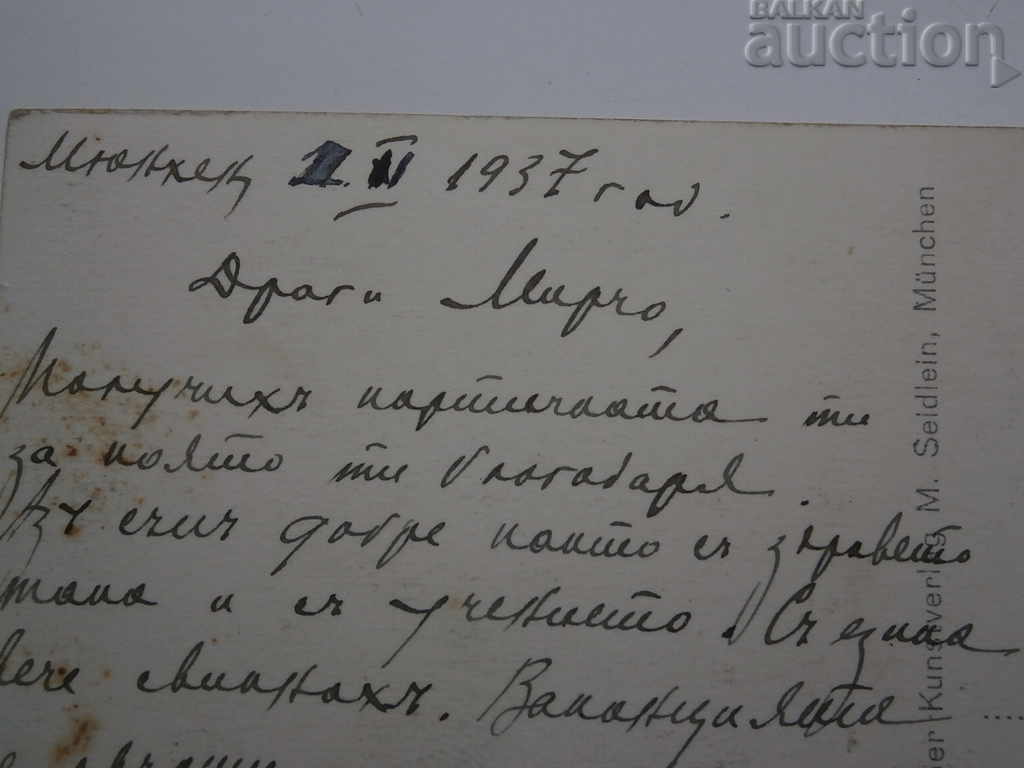 BALKAN
auction
Мюнхен 2. II 1937 год.
Драги Мирчо,
Получихъ картичката ти
за която ти благодаря.
Азъ съмъ добре както съ здравето
така и съ учението. Съ езика
вече свикнахъ. Ваканцията
M. Seidlein, München